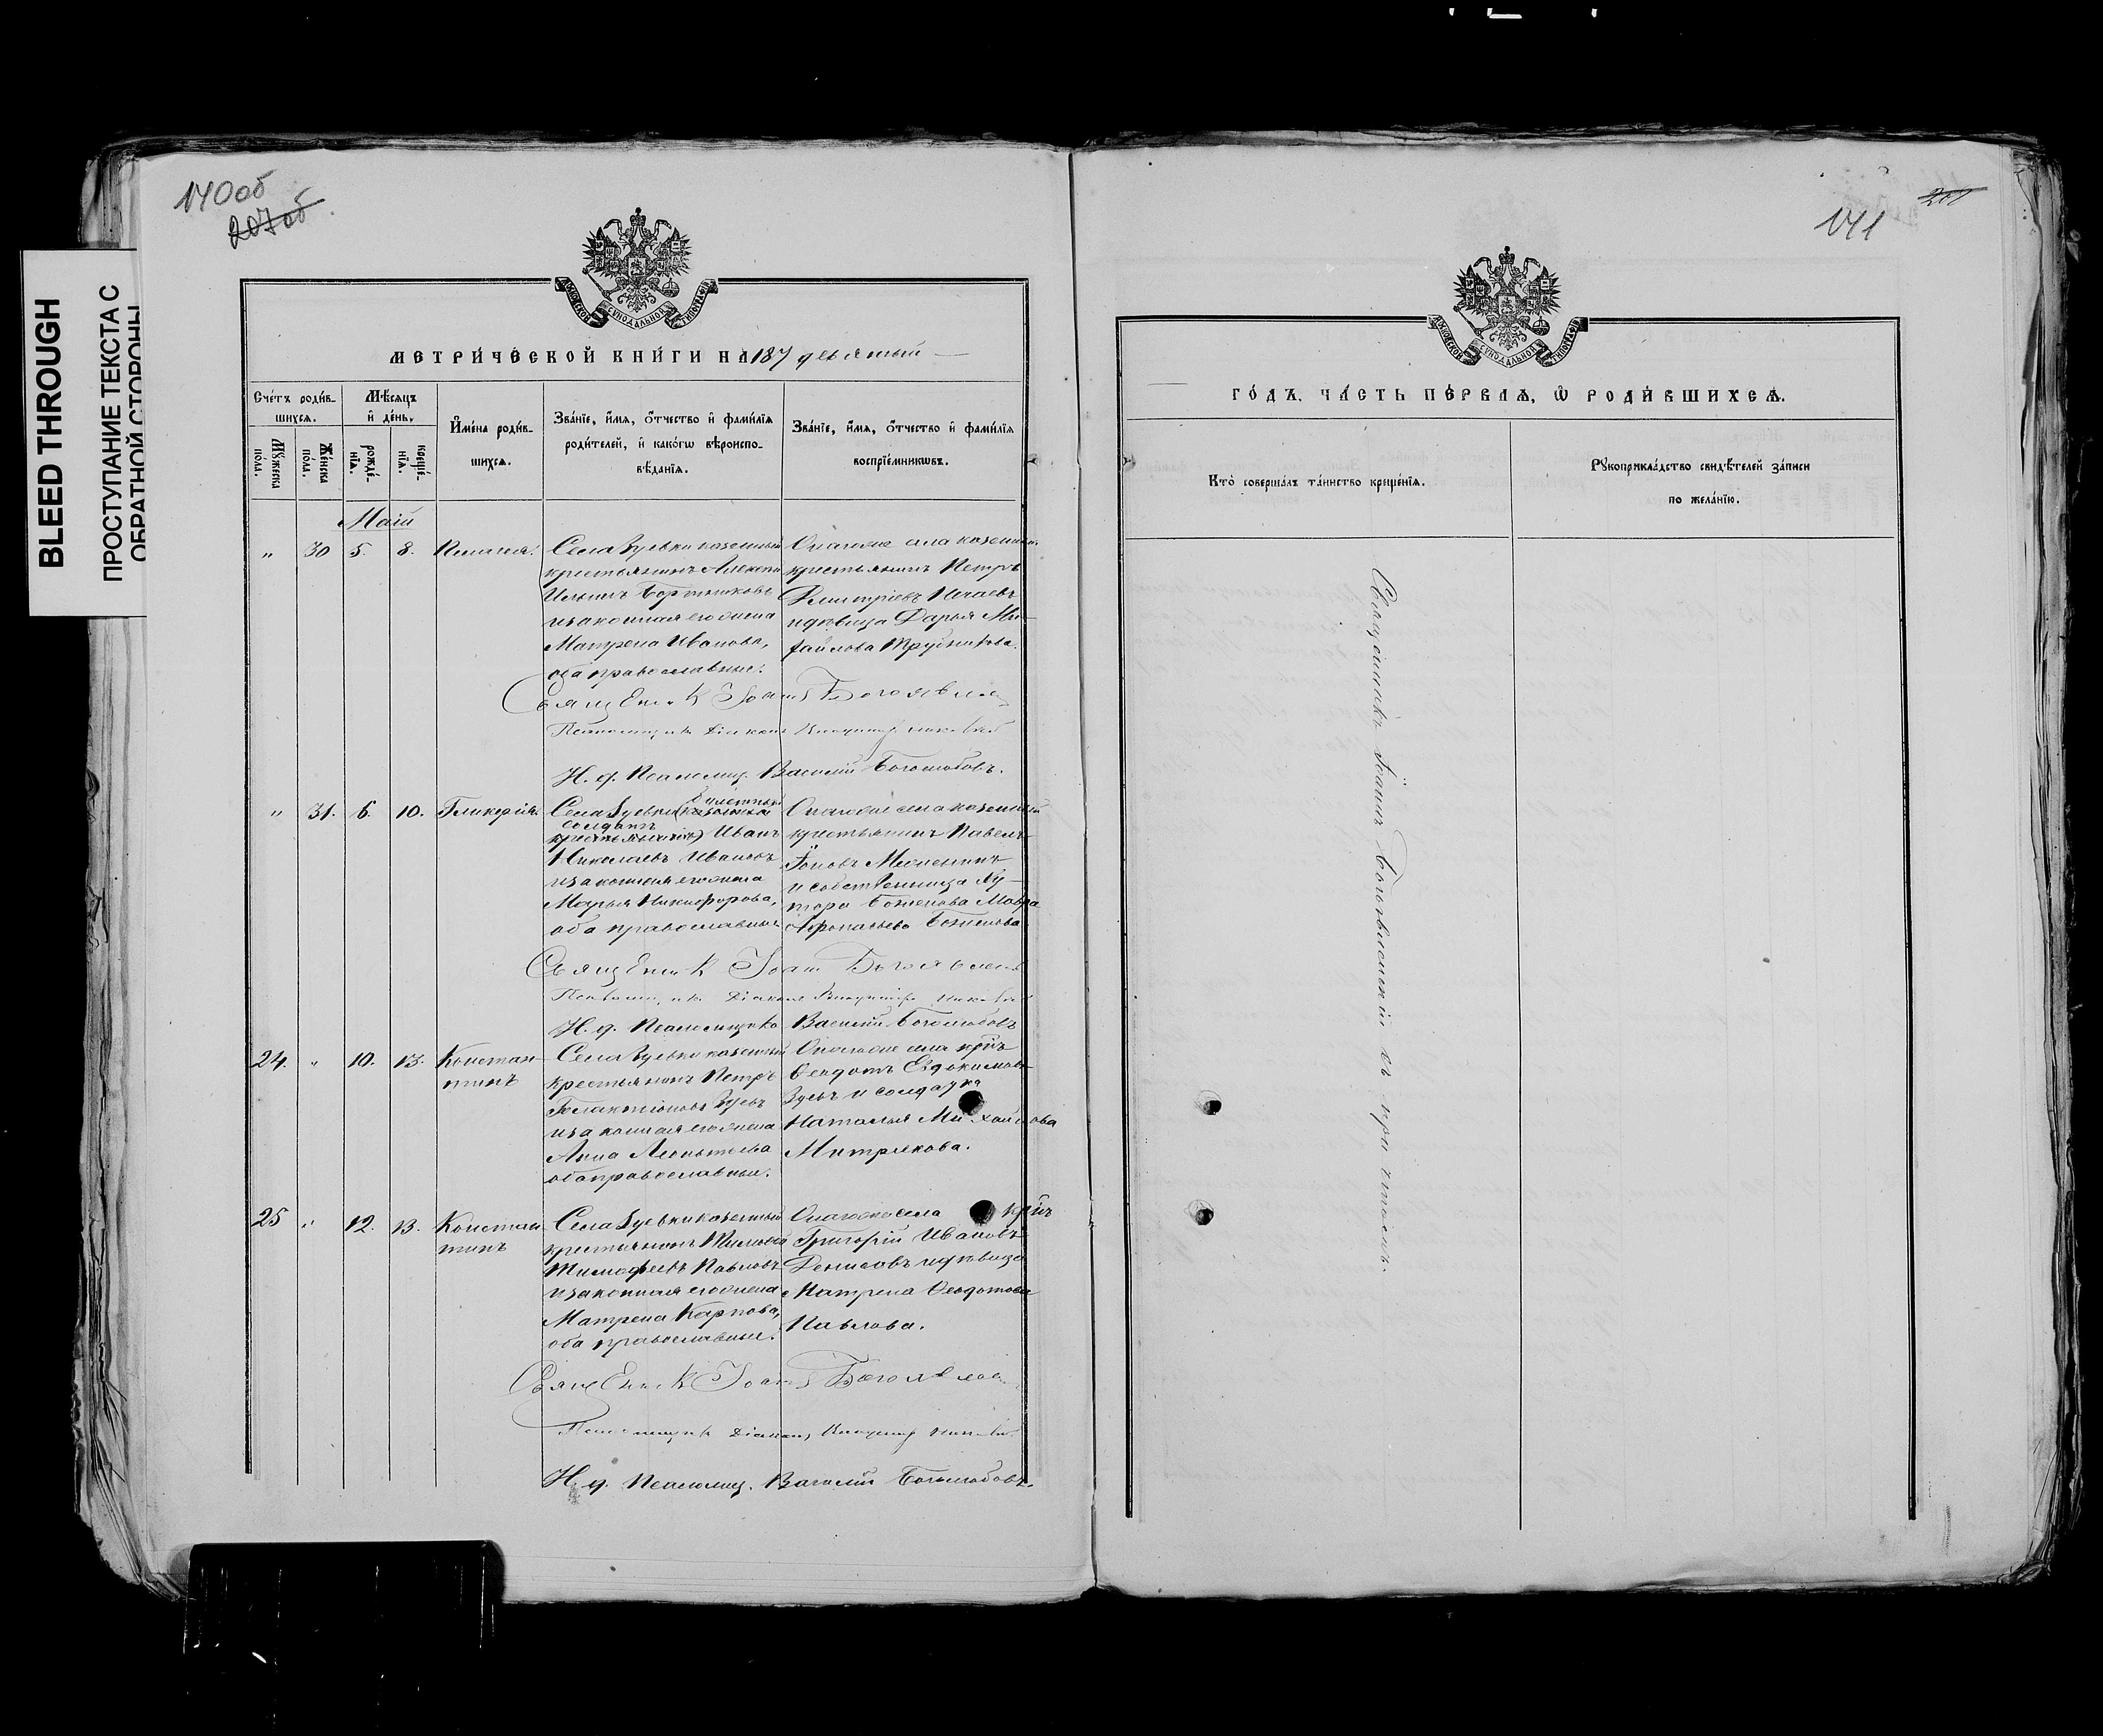 BLEED THROUGH
ПРОСТУПАНИЕ ТЕКСТА С
ОБРАТНОЙ СТОРОНЫ
140об
207об
МОСКОВСКОЙ СѴНОДАЛЬНОЙ ТИПОГРАФІИ
МЕТРИ́ЧЕСКОЙ КНИ́ГИ НА 187 девятый
Сче́тъ роди́в-
шихсѧ.
Мѣ́сяцъ
и҆ де́нь.
Мꙋ́жеска
по́ла.
Же́нска
по́ла.
рожде́-
нїѧ.
креще́-
нїѧ.
И҆мена̀ роди́в-
шихсѧ.
Зва́нїе, и҆́мѧ, ѻ҆́тчество и҆ фами́лїѧ
роди́телей, и҆ како́гѡ вѣроиспо-
вѣ́данїѧ.
Зва́нїе, и҆́мѧ, ѻ҆́тчество и҆ фами́лїѧ
воспрїе́мникѡвъ.
Маій
„ 30 5. 8.
Села Зуевки казенный
крестьянинъ Алексѣй
Ильинъ Бортниковъ
и законная его жена
Матрена Иванова,
оба православные.
Онагоже села казенный
крестьянинъ Петръ
Димитріевъ
и дѣвица Дарья Ми-
хайлова Трубникова.
Священникъ Іоаннъ Богоявлен
Псаломщикъ Діаконъ Владимиръ
И. д. Псаломщ. Василій Боголюбовъ.
„ 31. 6. 10. Гликерія.
Села Зуевки билетный
солдатъ Иванъ
Николаевъ Ивановъ
и законная его жена
Марья Никифорова,
оба православные
Онагоже села казенный
крестьянинъ Павелъ
Іоновъ
и собственница Ху-
тора Боженова Мавра
Афонасьева Боженова
Священникъ Іоаннъ Богоявлен
Псаломщикъ Діаконъ Владимиръ
И. д. Псаломщика Василій Боголюбовъ
24. „ 10. 13. Констан-
тинъ
Села Зуевки казенный
крестьянинъ Петръ
Галактіоновъ Зуевъ
и законная его жена
Анна Леонтьева
оба православные.
Онагоже села кр̃нъ
Ѳеодотъ Евдокимовъ
Зуевъ и солдатка
Наталья Михайлова
Митрякова.
25 „ 12. 13. Констан-
тинъ
Села Зуевки казенный
крестьянинъ
Тимофеевъ Павловъ
и законная его жена
Матрена Карпова,
оба православные.
Онагоже села кр̃нъ
Григорій Ивановъ
Денисовъ и дѣвица
Матрена Ѳеодотова
Павлова.
Священникъ Іоаннъ Богоявлен
Псаломщикъ Діаконъ Владимиръ
И. д. Псаломщ. Василій Боголюбовъ.
201
141
МОСКОВСКОЙ СѴНОДАЛЬНОЙ ТИПОГРАФІИ
ГО́ДЪ, ЧА́СТЬ ПЕ́РВАѦ, Ѽ РОДИ́ВШИХСѦ.
Кто̀ соверша́лъ та́инство креще́нїѧ.
Рꙋкоприкла́дство свидѣ́телей за́писи
по жела́нїю.
Священникъ Іоаннъ Богоявленскій съ причтомъ.